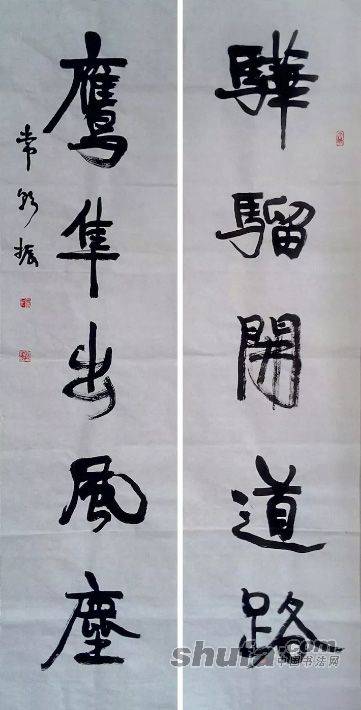 驊騮開道路
鷹隼出風塵
常
振
shufa.com
中国书法网